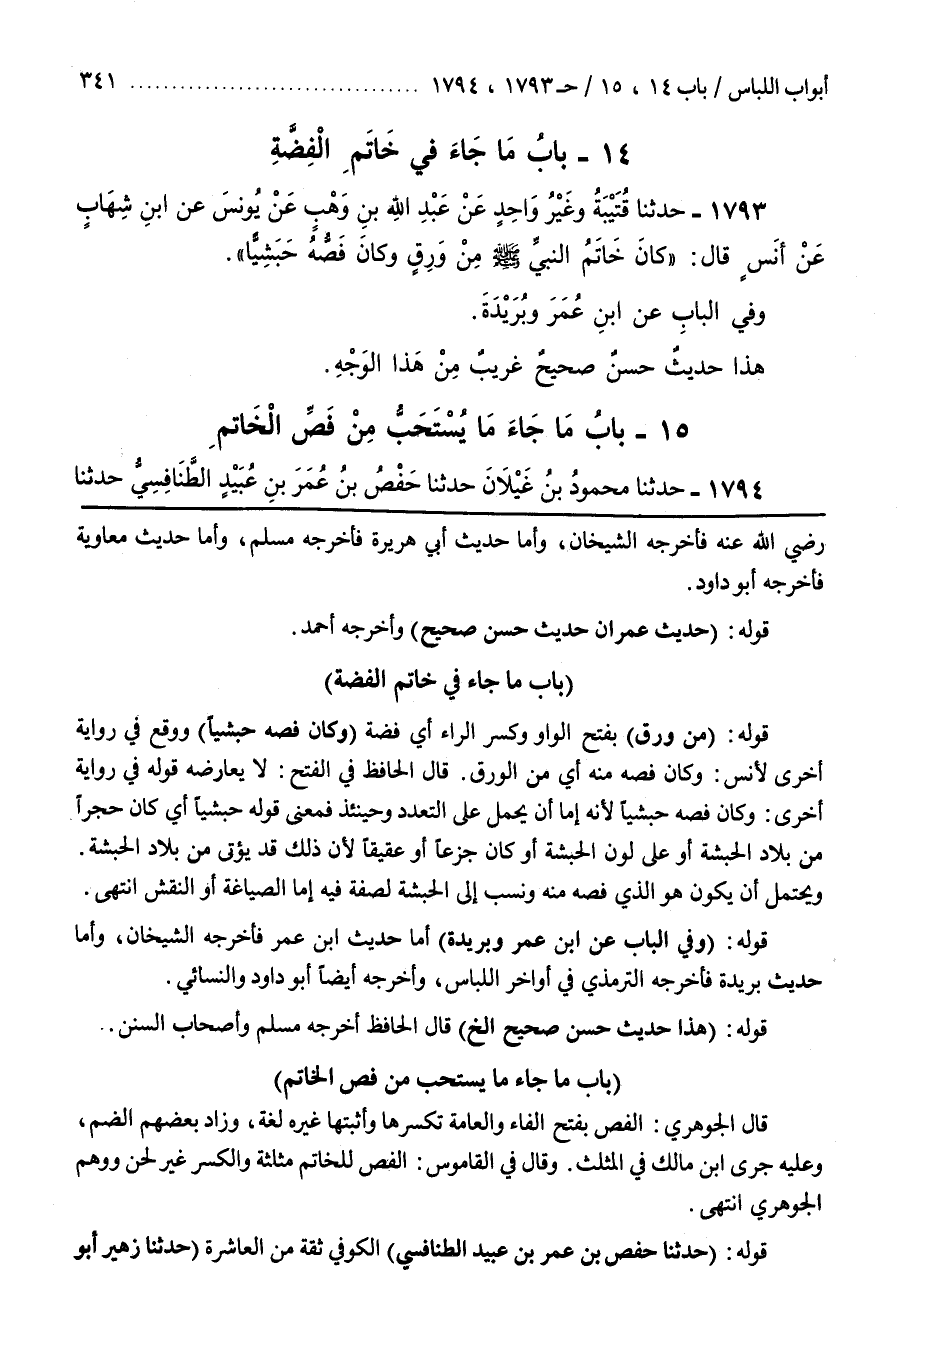 أبواب اللباس / باب ١٤ ، ١٥ / حـ ١٧٩٣ ، ١٧٩٤ .................................. ٣٤١
١٤ - بابُ مَا جَاءَ في خَاتَمِ الْفِضَّةِ
١٧٩٣ - حدثنا قُتَيْبَةُ وغَيْرُ وَاحِدٍ عَنْ عَبْدِ اللهِ بنِ وَهْبٍ عَنْ يُونسَ عن ابنِ شِهَابٍ
عَنْ أنَسٍ قال: «كانَ خَاتَمُ النبيِّ ﷺ مِنْ وَرِقٍ وكانَ فَصُّهُ حَبَشِيًّا».
وفي البابِ عن ابنِ عُمَرَ وبُرَيْدَةَ.
هذا حديثٌ حسنٌ صحيحٌ غريبٌ مِنْ هَذا الوَجْهِ.
١٥ - بابُ مَا جَاءَ مَا يُسْتَحَبُّ مِنْ فَصِّ الْخَاتمِ
١٧٩٤ - حدثنا محمودُ بنُ غَيْلَانَ حدثنا حَفْصُ بنُ عُمَرَ بنِ عُبَيْدٍ الطَّنَافِسِيُّ حدثنا
رضي الله عنه فأخرجه الشيخان، وأما حديث أبي هريرة فأخرجه مسلم، وأما حديث معاوية
فأخرجه أبو داود.
قوله: (حديث عمران حديث حسن صحيح) وأخرجه أحمد.
(باب ما جاء في خاتم الفضة)
قوله: (من ورق) بفتح الواو وكسر الراء أي فضة (وكان فصه حبشياً) ووقع في رواية
أخرى لأنس: وكان فصه منه أي من الورق. قال الحافظ في الفتح: لا يعارضه قوله في رواية
أخرى: وكان فصه حبشياً لأنه إما أن يحمل على التعدد وحينئذ فمعنى قوله حبشياً أي كان حجراً
من بلاد الحبشة أو على لون الحبشة أو كان جزعاً أو عقيقاً لأن ذلك قد يؤتى من بلاد الحبشة.
ويحتمل أن يكون هو الذي فصه منه ونسب إلى الحبشة لصفة فيه إما الصياغة أو النقش انتهى.
قوله: (وفي الباب عن ابن عمر وبريدة) أما حديث ابن عمر فأخرجه الشيخان، وأما
حديث بريدة فأخرجه الترمذي في أواخر اللباس، وأخرجه أيضاً أبو داود والنسائي.
قوله: (هذا حديث حسن صحيح الخ) قال الحافظ أخرجه مسلم وأصحاب السنن..
(باب ما جاء ما يستحب من فص الخاتم)
قال الجوهري: الفص بفتح الفاء والعامة تكسرها وأثبتها غيره لغة، وزاد بعضهم الضم،
وعليه جرى ابن مالك في المثلث. وقال في القاموس: الفص للخاتم مثلثة والكسر غير لحن ووهم
الجوهري انتهى.
قوله: (حدثنا حفص بن عمر بن عبيد الطنافسي) الكوفي ثقة من العاشرة (حدثنا زهير أبو